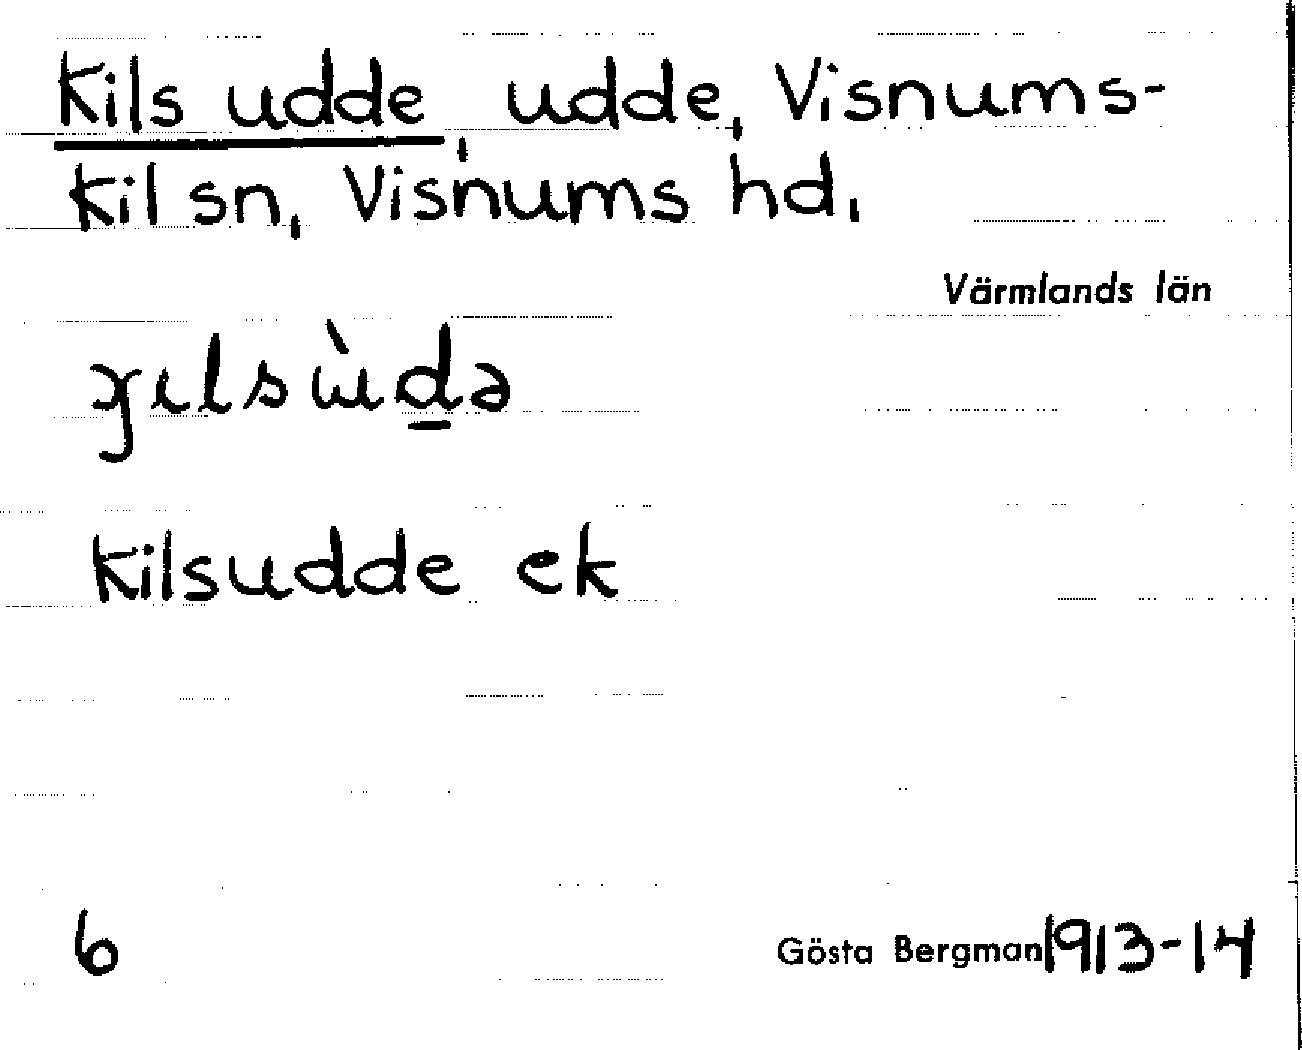 Kils udde, udde, Visnums-
Kil sn, Visnums hd.
Värmlands län
Kilsudde ek
6
Gösta Bergman 1913-14